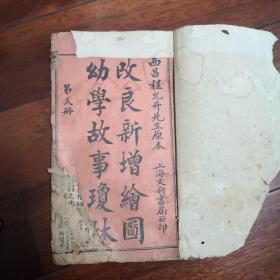 西昌程允升先生原本
改良新增繪圖
幼學故事瓊林
上海文新書局石印
第弍冊